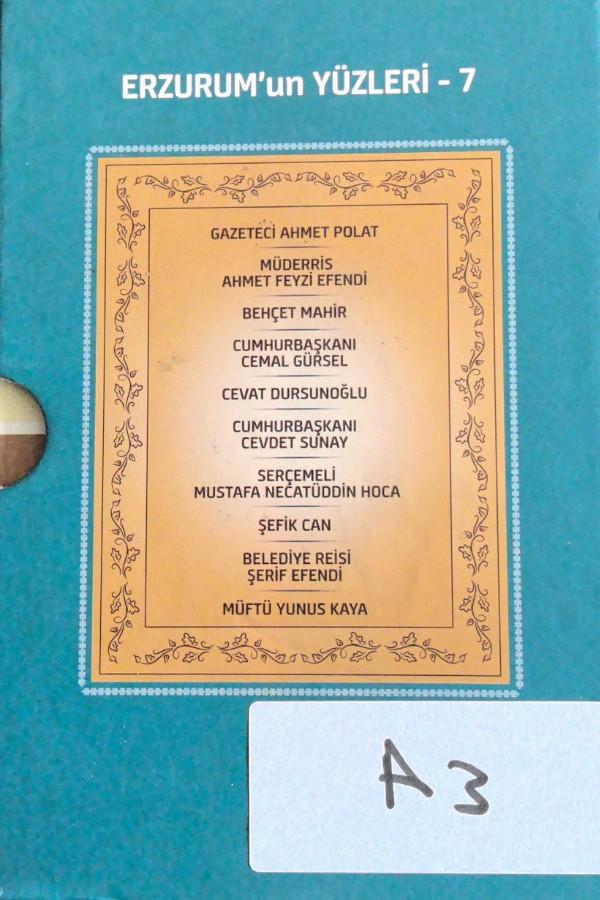 ERZURUM'un YÜZLERİ - 7
GAZETECİ AHMET POLAT
MÜDERRİS
AHMET FEYZİ EFENDİ
BEHÇET MAHİR
CUMHURBAŞKANI
CEMAL GÜRSEL
CEVAT DURSUNOĞLU
CUMHURBAŞKANI
CEVDET SUNAY
SERÇEMELİ
MUSTAFA NECATÜDDİN HOCA
ŞEFİK CAN
BELEDİYE REİSİ
ŞERİF EFENDİ
MÜFTÜ YUNUS KAYA
A3